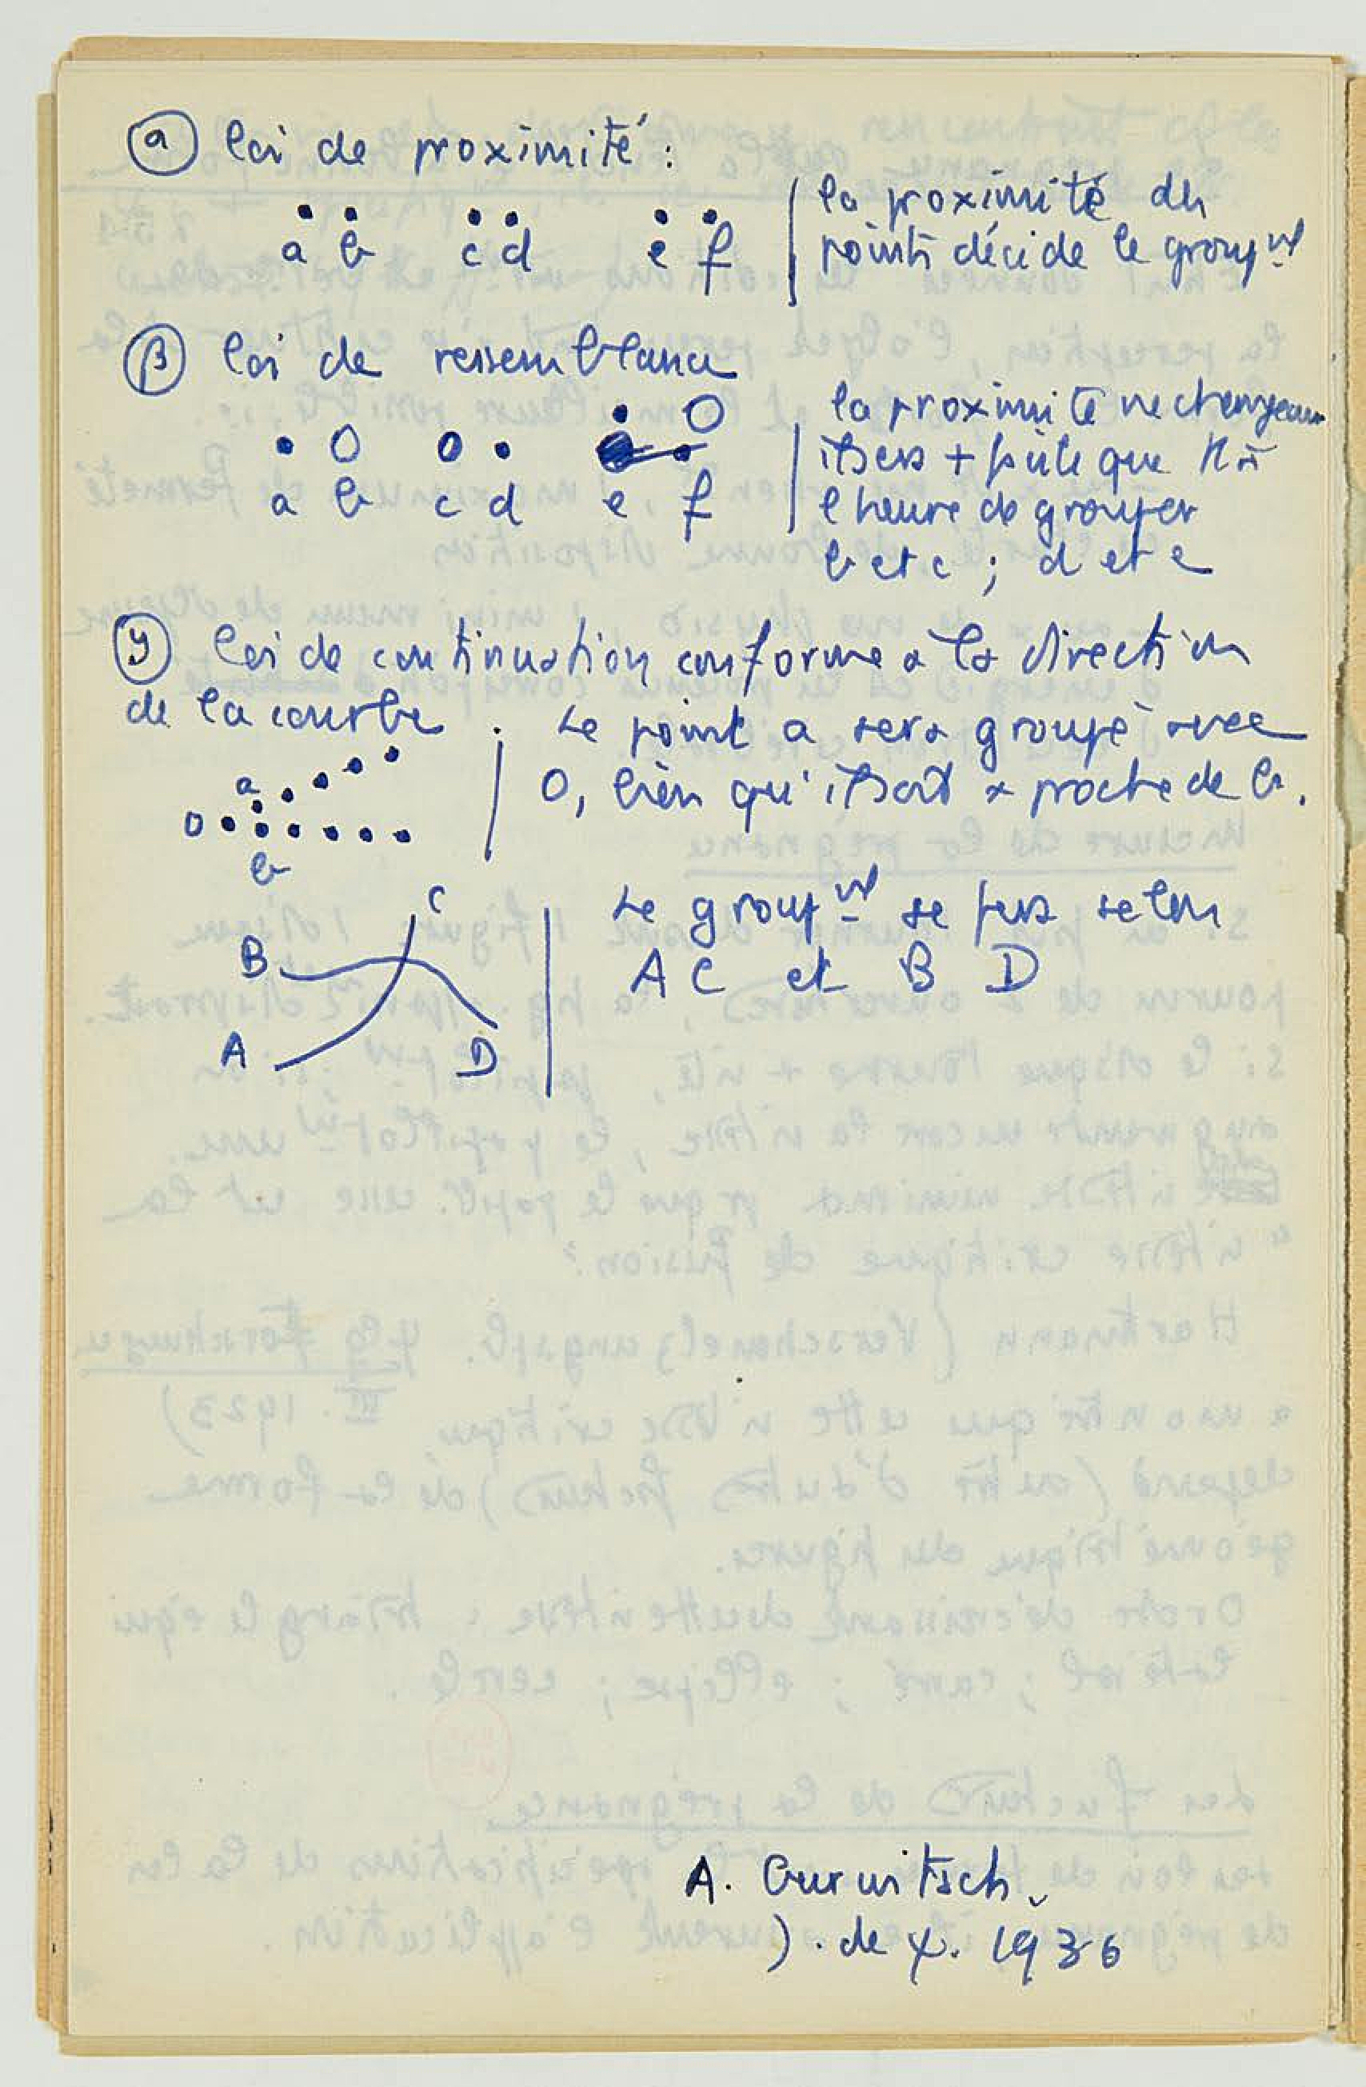 α loi de proximité :
a b c d e f
la proximité des
points décide le groupmt
β loi de ressemblance
a b c d e f
la proximité ne changeant
il sera + facile que
l'heure de grouper
b et c ; d et e
γ loi de continuation conforme à la direction
de la courbe . Le point a sera groupé avec
O, bien qu'il soit + proche de b.
a
O
b
Le groupmt se fera selon
A C et B D
C
B
A D
A. Gurwitsch.
J. de ψ. 1936